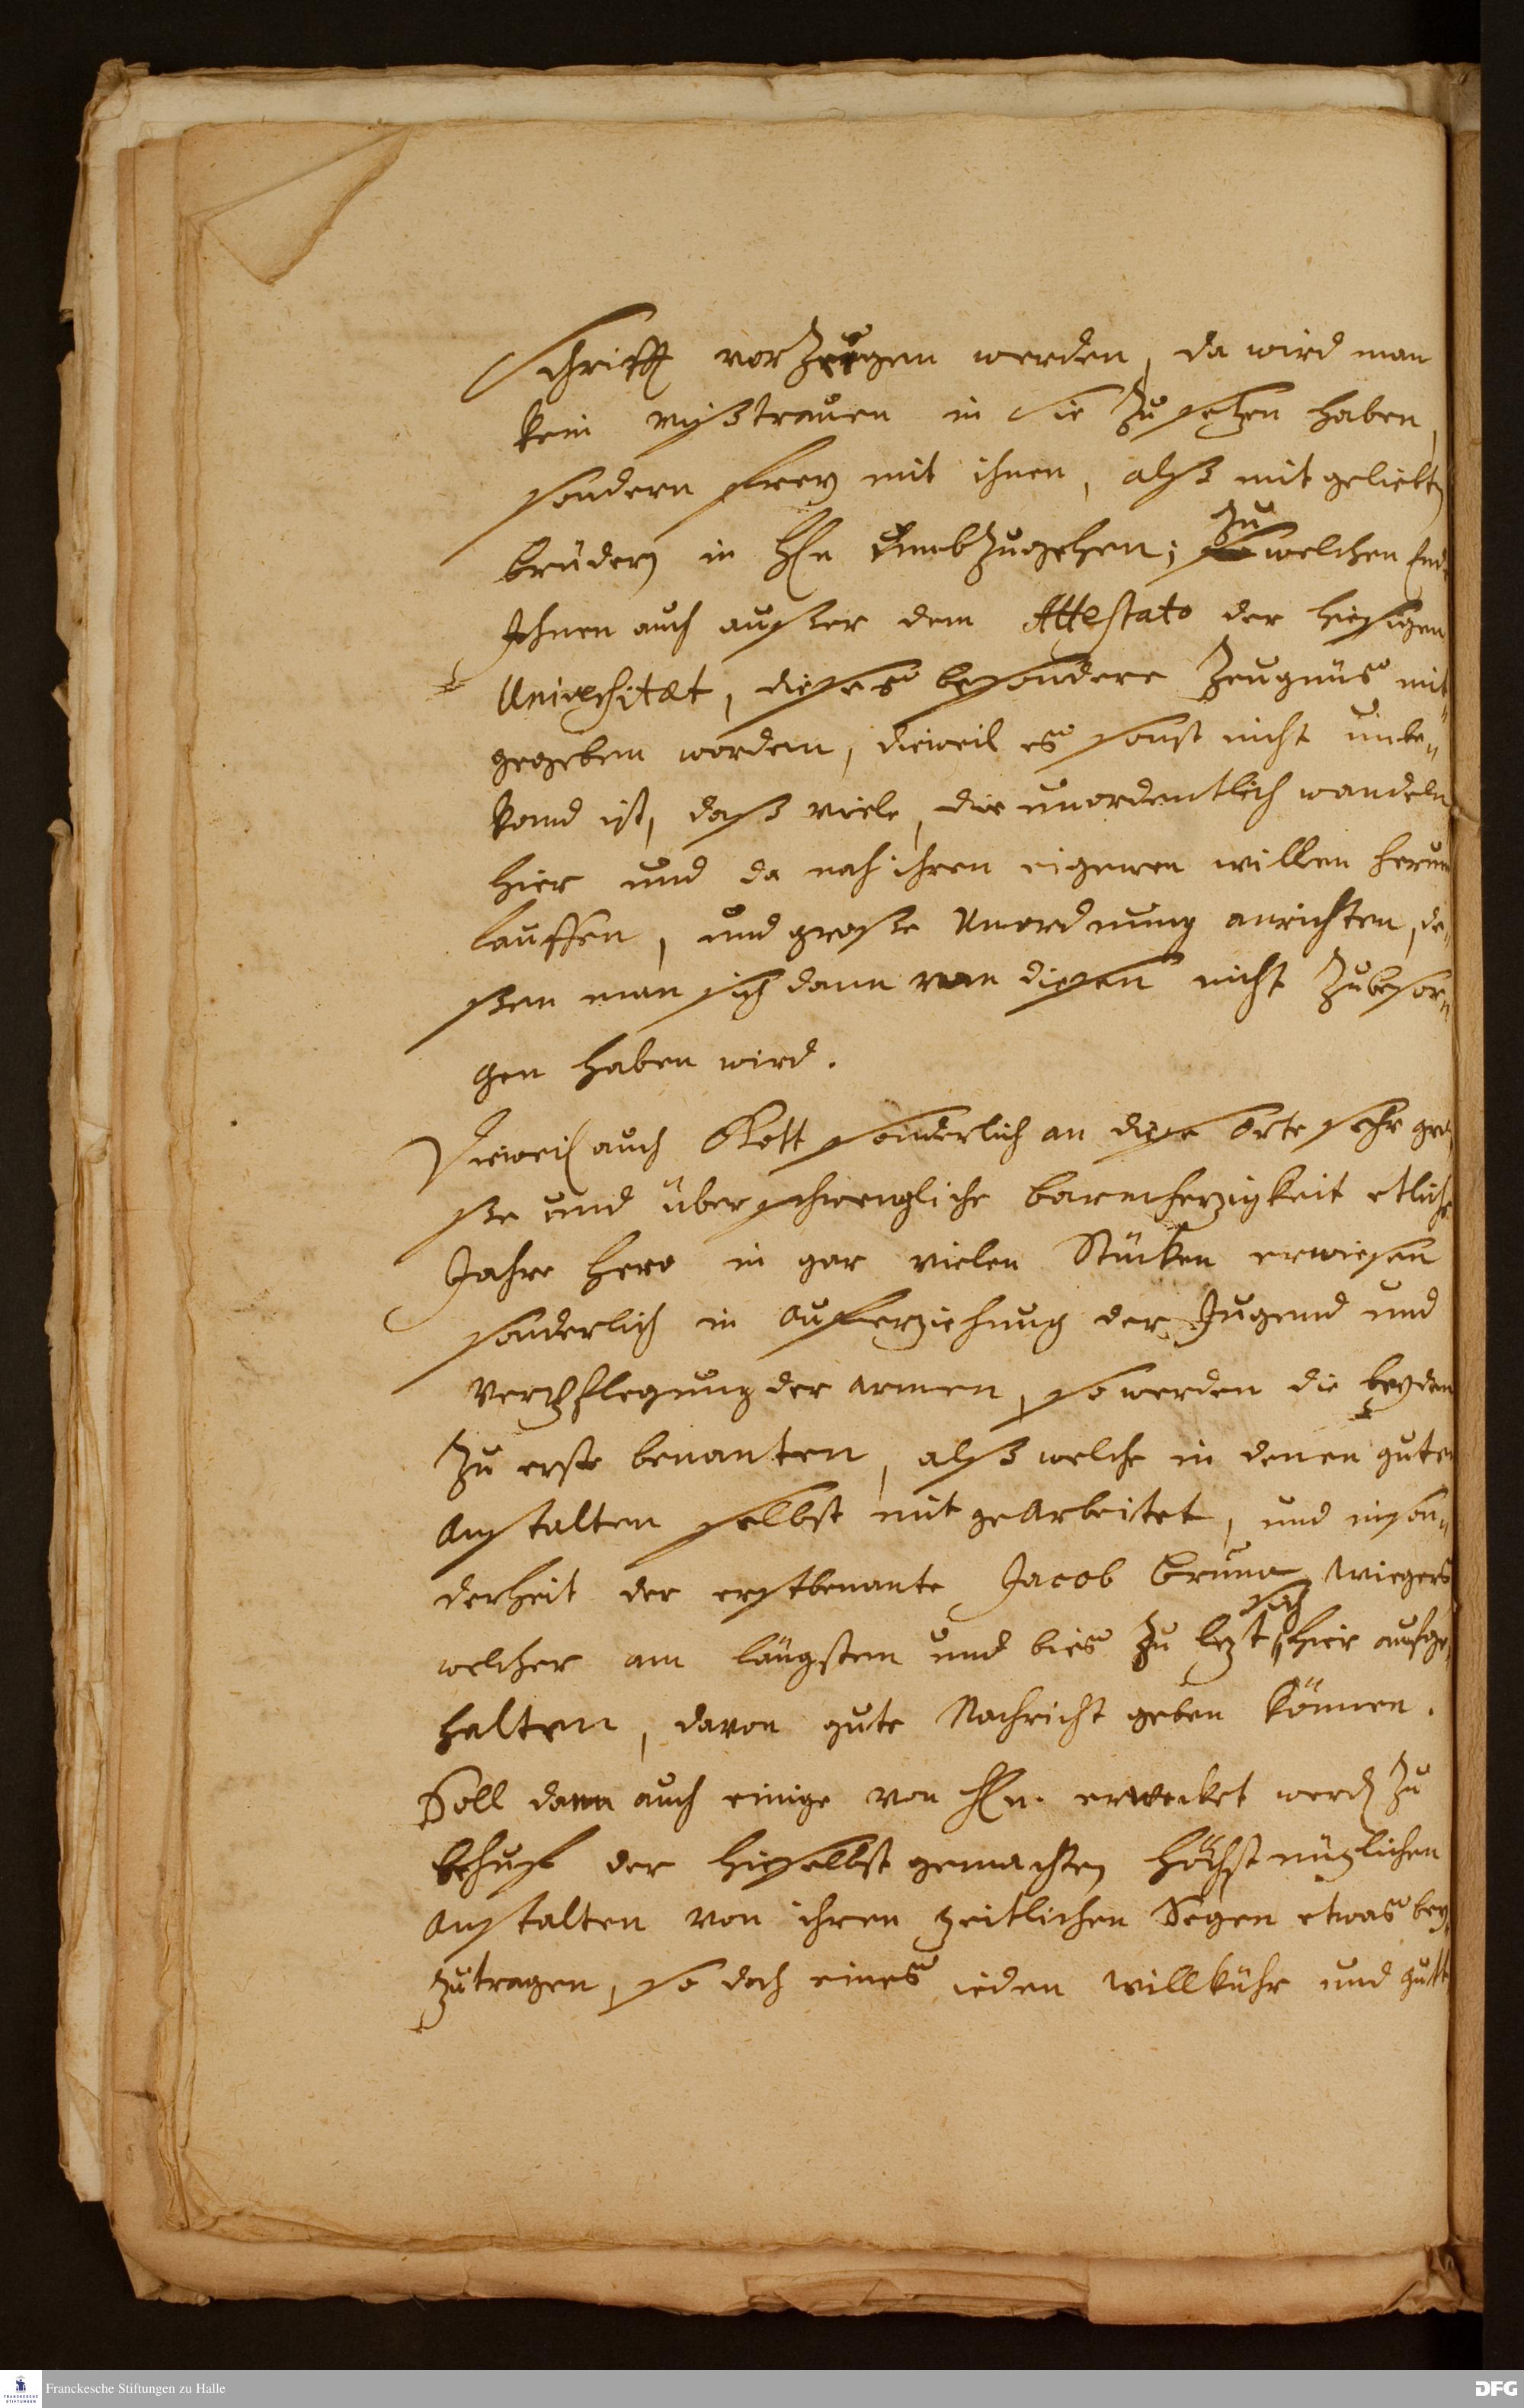 Schrifft vorzeugen werden, da wird man
kein mißtrauen in Sie zu setzen haben,
sondern frey mit ihnen, alß mit geliebten
brüdern in HEn umbzugehen; zu welchen Ende
Ihnen auch ausser dem Attestato der hiesigen
Universitæt, dieses besondere Zeugnüs mit„
gegeben worden, dieweil es sonst nicht unbe„
kand ist, daß viele, die unordentlich wandeln
hier und da nach ihren eigenen willen herum
lauffen, und grosse Unordnung anrichten, de„
ssen man sich dann von diesen nicht zubesor„
gen haben wird.
Dieweil auch Gott sonderlich an diese Orte sehr gro„
sse und überschwengliche barmherzigkeit etliche
Jahre hero in gar vielen Stücken erwiesen
sonderlich in aufferziehung der Jugend und
Verpflegung der armen, so werden die beyden
zu erste benanten, alß welche in denen guten
anstalten selbst mit gearbeitet, und inson„
derheit der erstbenante Jacob Bruno Wigers
welcher am längsten und bies zu lezt sich hier aufge„
halten, davon gute Nachricht geben können.
Soll dann auch einige von HEn. erwecket werden zu
behuf der hieselbst gemachten höchst nüzlichen
anstalten von ihren zeitlichen Segen etwas bey„
zutragen, so doch eines ieden willkühr und gutt
Franckesche Stiftungen zu Halle
FRANCKESCHE STIFTUNGEN
DFG